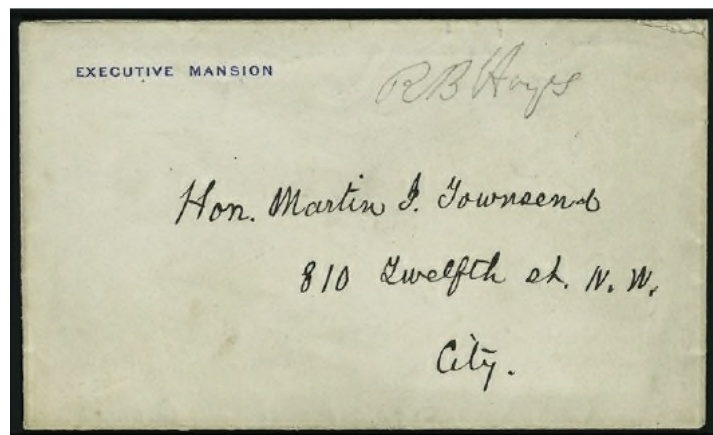 EXECUTIVE MANSION
RB Hayes
Hon. Martin I. Townsend
810 Twelfth st. N. W.
City.